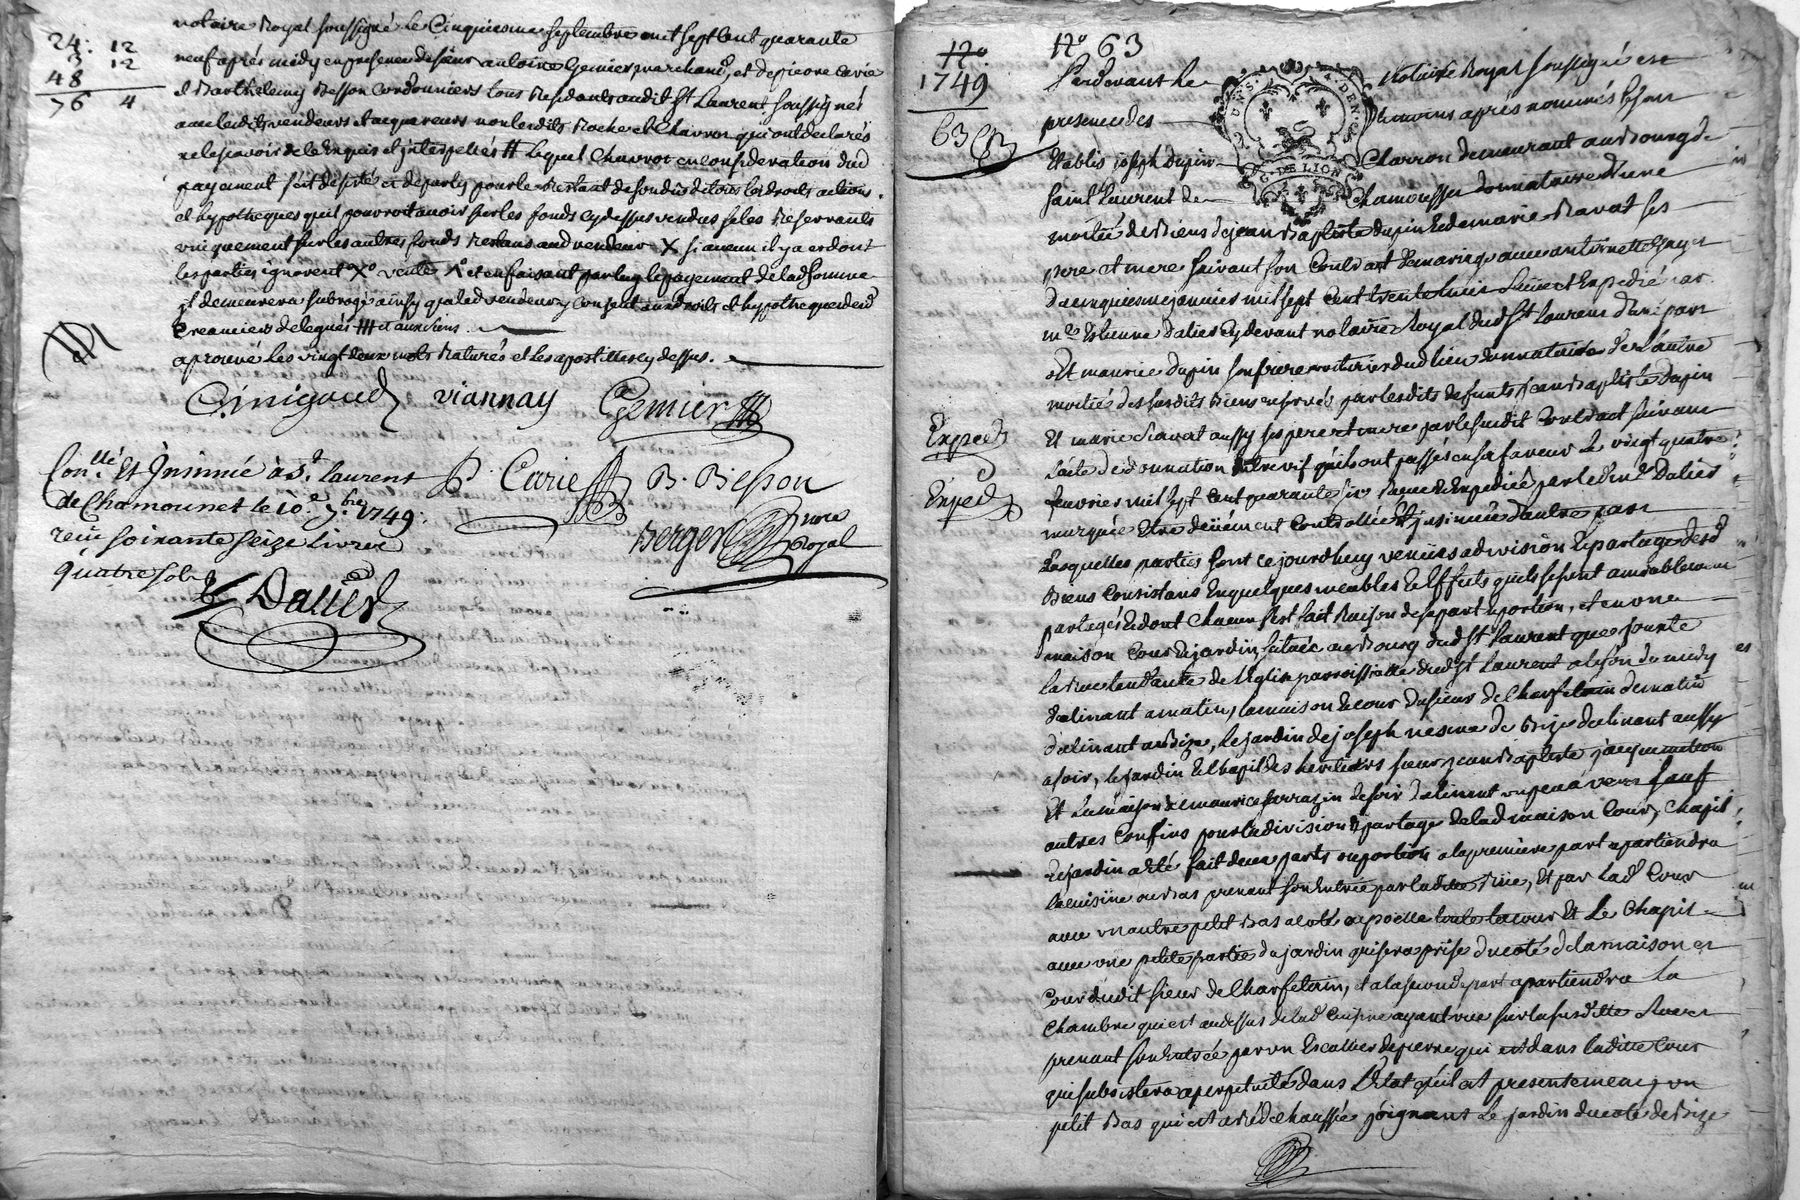 24: 12
3 12
48
76 4
notaire Royal soussigné le Cinquiesme septembre mil sept Cent quarante
neuf aprés midy en presence de sieur antoine Gemier marchand, et de pierre Carie
et Barthelemy Besson Cordonniers tous Residants audit St Laurent soussignés
avec lesdits vendeurs et acquereurs non lesdits Roche et Charvon qui ont declarés
ne le scavoir de ce Enquis et interpellés # lequel Charvon en consideration dud
payement s'est désisté et departy pour le Restant de son dû de tous les droits actions
et hypotheques quil pourroit avoir sur les fonds cy dessus vendus se les Reservants
uniquement sur les autres fonds Restans aud vendeur X si aucun il y a et dont
les parties ignorent X vente X et en faisant par luy le payement de lad somme
il demeurera subrogé ainsy que led vendeur y Consent aux droits et hypotheques desd
Creanciers delegués # et aux siens.
aprouvé les vingt deux mots Raturés et les apostilles cy dessus.
Cinigaud viannay Gemier
P. Carie B. Besson
Berger nore Royal
Con.llé Et Insinué à St Laurent
de Chamounet le 10e 7bre 1749:
reçu soixante seize livres
quatre sols
Dalier
No
1749
63
No 63
Pardevant le notaire Royal soussigné et
presences des temoins aprés nommés se sont
Etablis joseph Dupin Charron demeurant au Bourg de
saint Laurent de Chamousset donnataire d'une
G. DE LION
moitié des Biens de jean Baptiste dupin et de marie Ravat ses
pere et mere suivant son Contract de mariage avec antoinette
du cinquiesme janvier mil sept Cent trente huit Receu et Expedié par
me Etienne Dalier cy devant notaire Royal dud St Laurent d'une part
Et maurice Dupin son frere voiturier dud lieu donnataire de l'autre
moitié des susdits Biens reservés par lesdits defunts jean Baptiste Dupin
Et marie Ravat aussy ses pere et mere par le susdit Contract suivant
Expedié
l'acte de donnation Entrevif qu'ils ont passés en sa faveur le vingt quatre
Exped
fevrier mil sept Cent quarante six Receu et Expedié par ledit me Dalier
marquée Etre deüement Controllée et insinuée d'autre part
Lesquelles parties sont cejourdhuy venües a division et partage desd
Biens Consistans En quelques meubles et Effets quils se sont amiablement
partagés et dont Chacun s'est fait Raison de sa part et portion, et en une
maison Cour et jardin situés au Bourg dud St Laurent que jouxte
la Rue tendante de l'Eglise parroissialle dud St Laurent a lyon de midy
declinant a matin, la maison et cour du sieur de Charfetain de matin
declinant a Bize, le jardin de joseph nesme de Bize declinant aussy
a soir, le jardin et Chapit des heritiers sieur jean Baptiste jacquemeton
Et la maison de maurice sarrazin de soir declinant un peu a vent sauf
autres Confins pour la division et partage de lad maison Cour, Chapit
et jardin a été fait deux parts ou portion a la premiere part apartiendra
la cuisine ou Bas prenant son Entrée par ladite Rüe, Et par lad Cour
avec un autre petit Bas a coté ou poelle toute la cour Et Le Chapit
avec une petite partie du jardin qui sera prise du coté de la maison et
Cour dudit sieur de Charfetain, et a la seconde part apartiendra La
Chambre qui est au dessus de lad Cuisine ayant vue sur la susditte Rue et
prenant son Entrée par un Escallier de pierre qui est dans laditte Cour
qui subsistera a perpetuité dans L'Etat qu'il est presentement, un
petit Bas qui est a Réz de chaussée joignant Le jardin du coté de Bize